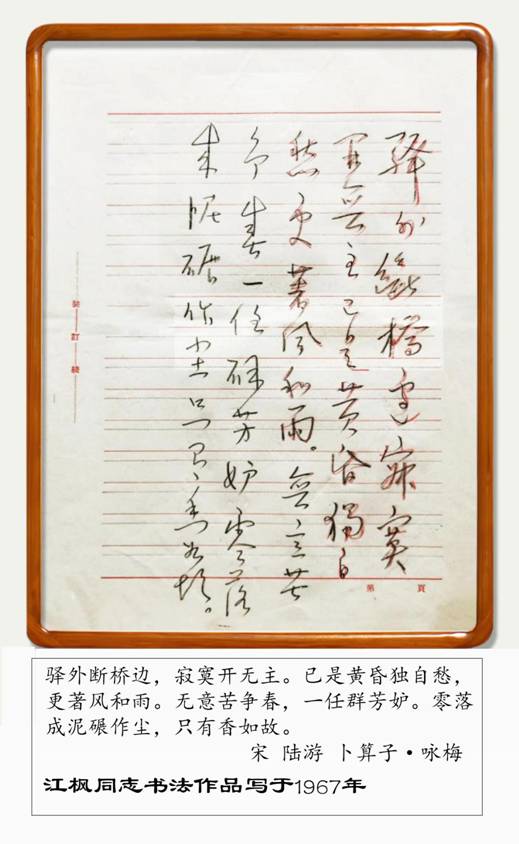 驛外斷橋邊寂寞
開無主已是黄昏獨自
愁更著風和雨。無意苦
争春一任群芳妒零落
成泥碾作尘只有香如故。
装訂綫
第 頁
驿外断桥边，寂寞开无主。已是黄昏独自愁，
更著风和雨。无意苦争春，一任群芳妒。零落
成泥碾作尘，只有香如故。
宋 陆游 卜算子·咏梅
江枫同志书法作品写于1967年